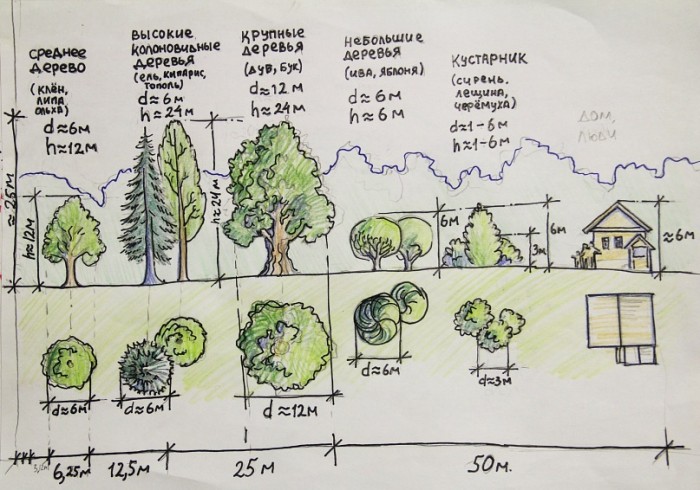 среднее
дерево
(клён,
липа,
ольха)
d≈6м
h≈12м
высокие
колоновидные
деревья
(ель, кипарис,
тополь)
d≈6м
h≈24м
крупные
деревья
(дуб, бук)
d≈12м
h≈24м
небольшие
деревья
(ива, яблоня)
d≈6м
h≈6м
кустарник
(сирень,
лещина,
черёмуха)
d≈1-6м
h≈1-6м
дом,
люди
≈25м
h≈12м
h≈24м
6м
3м
6м
≈6м
d≈6м
d≈6м
d≈12м
d≈6м
d≈3м
6,25м
12,5м
25м
50м.